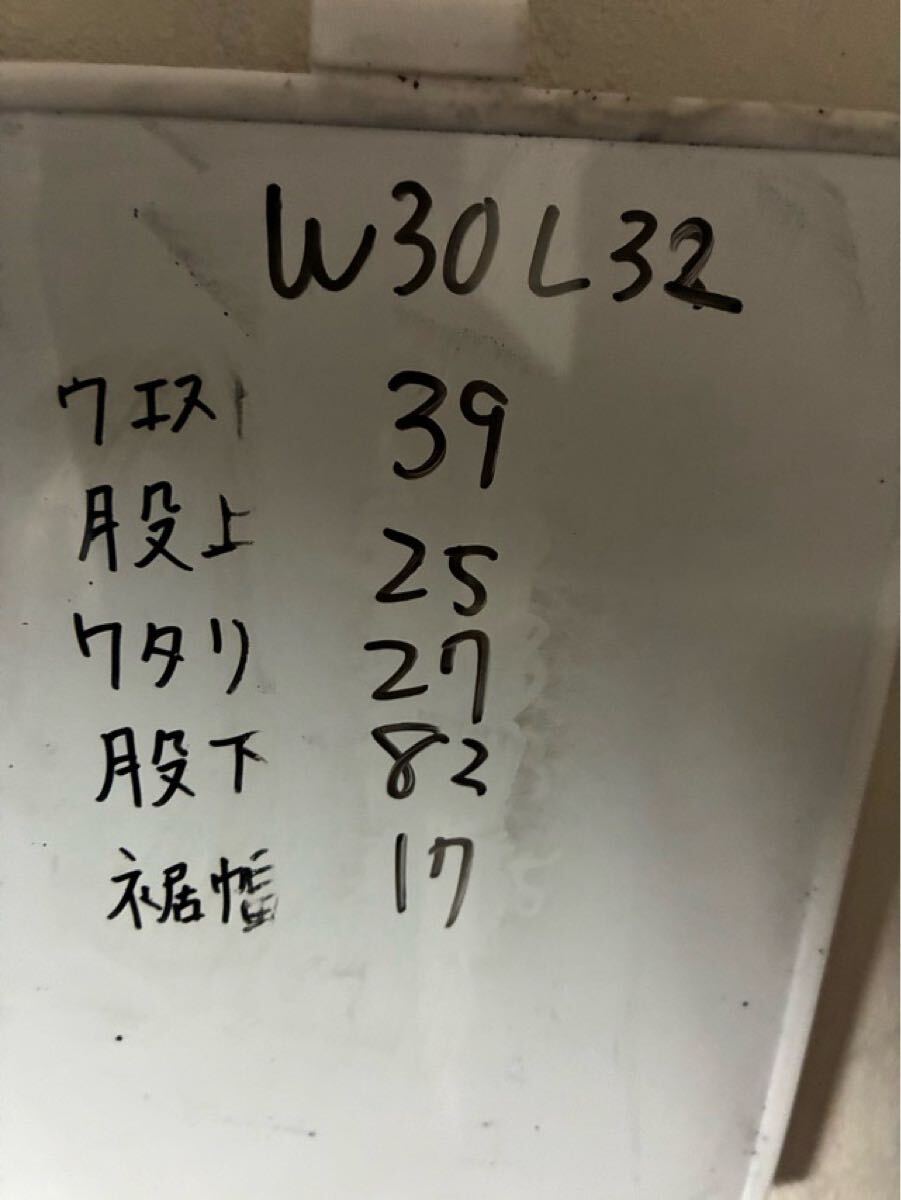 W30 L32
ウエスト 39
股上 25
ワタリ 27
股下 82
裾幅 17